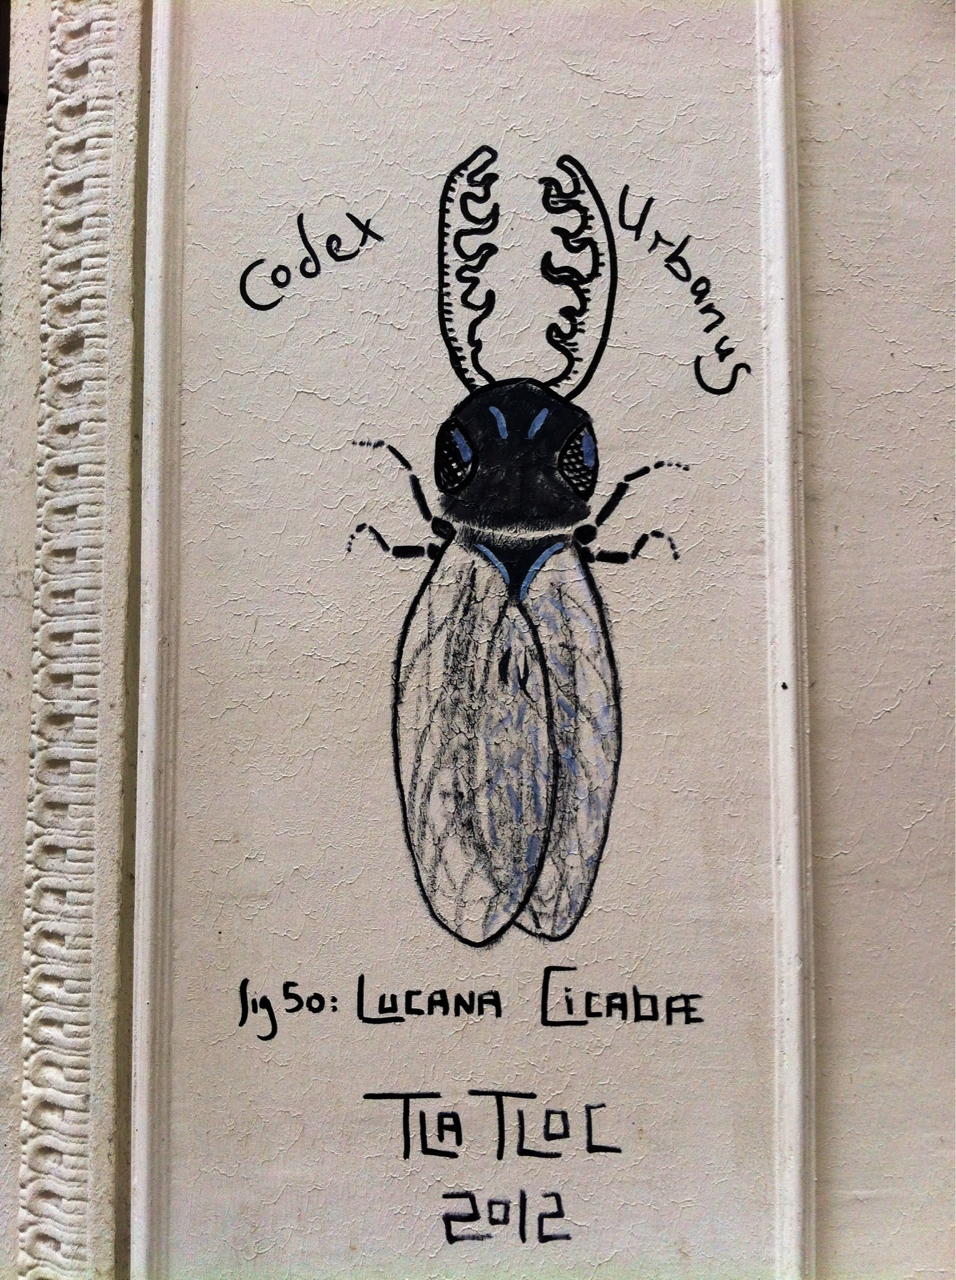 Codex Urbanus
fig 50: LUCANA CICADÆ
TLATLOC
2012